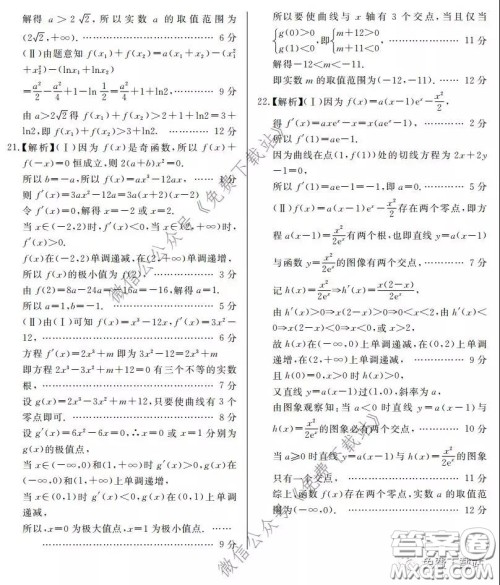 解得 a>2√2,所以实数 a 的取值范围为
(2√2,+∞). …………… 6分
(Ⅱ)由题意知 f(x₁)+f(x₂)=a(x₁+x₂)-(x₁²
+x₂²)-(lnx₁+lnx₂)
=a²/2-a²/4+1-ln 1/2=a²/4+1+ln2,
由 a>2√2得 f(x₁)+f(x₂)>2+1+ln2=3+
ln2,即 f(x₁)+f(x₂)>3+ln2. …… 12分
21.【解析】(Ⅰ)因为 f(x)是奇函数,所以 f(x)+
f(-x)=0 恒成立,则 2(a+b)x²=0.
所以 b=-a,所以 f(x)=ax³-12ax, … 1分
则 f′(x)=3ax²-12a=3a(x+2)(x-2)
令 f′(x)=0,解得 x=-2 或 x=2.
当 x∈(-2,2)时,f′(x)<0,当 x∈(2,+∞)时,
f′(x)>0.
f(x)在(-2,2)单调递减,在(2,+∞)单调递增,
所以 f(x)的极小值为 f(2). …… 3分
由 f(2)=8a-24a=-16a=-16,解得 a=1.
所以 a=1,b=-1. …… 5分
(Ⅱ)由(Ⅰ)可知 f(x)=x³-12x,f′(x)=3x²-
12, …… 6分
方程 f′(x)=2x³+m 即为 3x²-12=2x³+m
即方程 2x³-3x²+m+12=0 有三个不等的实数
根, …… 7分
设 g(x)=2x³-3x²+m+12,只要使曲线有 3 个
零点即可. …… 8分
设 g′(x)=6x²-6x=0,∴x=0 或 x=1 分别为
g(x)的极值点,
当 x∈(-∞,0)和(1,+∞)时 g′(x)>0,g(x)在
(-∞,0)和(1,+∞)上单调递增,
当 x∈(0,1)时 g′(x)<0,g(x)在(0,1)上单调
递减,
所以,x=0 为极大值点,x=1 为极小值点.
…… 9分
所以要使曲线与 x 轴有 3 个交点,当且仅当
{g(0)>0 g(1)<0,即{m+12>0 m+11<0.
解得-12<m<-11.
即实数 m 的取值范围为(-12,-11). … 12分
22.【解析】(Ⅰ)因为 f(x)=a(x-1)eˣ-x²/2,
得 f′(x)=axeˣ-x=x(aeˣ-1), …… 2分
所以 f′(1)=ae-1.
因为曲线在点(1,f(1))处的切线方程为 2x+2y
-1=0,
所以 f′(1)=ae-1=-1,即 a=0. …… 5分
(Ⅱ)f(x)=a(x-1)eˣ-x²/2存在两个零点,即方
程 a(x-1)=x²/2eˣ有两个根,也即直线 y=a(x-1)
与函数 y=x²/2eˣ的图像有两个交点, …… 7分
记 h(x)=x²/2eˣ⇒h′(x)=x(2-x)/2eˣ,由 h′(x)<
0⇒x(2-x)>0⇒0<x<2,由 h′(x)<
0⇒x(2-x)<0⇒x<0 或 x>2,
故 h(x)在(-∞,0)上单调递减,在(0,2)上单调递
增,在(2,+∞)上单调递减, …… 9分
且 h(x)≥0,
又直线 y=a(x-1)过(1,0),斜率为 a,
由图象观察知,当 a<0 时直线 y=a(x-1)与
h(x)=x²/2eˣ的图象必有两个交点, …… 11分
当 a≥0 时直线 y=a(x-1)与 h(x)=x²/2eˣ的图象
只有一个交点,
综上,函数 f(x)存在两个零点,实数 a 的取值范
围为(-∞,0). …… 12分
微信公众号《免费下载站》
微信公众号《免费下载站》
答案